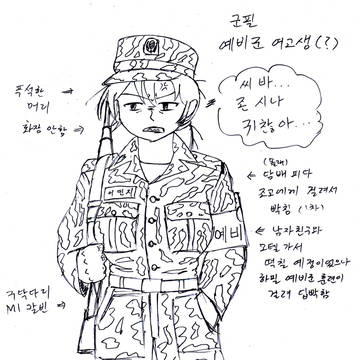 군필
예비군 여고생(?)
씨 바...
존 시나
귀찮아...
푸석한
머리
화장 안함
이민지
예비
(몰래)
담배 피다
조교에게 걸려서
빡침 (1차)
남자친구와
모텔 가서
떡칠 예정이었으나
하필 예비군 훈련이
걸려 딥빡함
구닥다리
M1 카빈